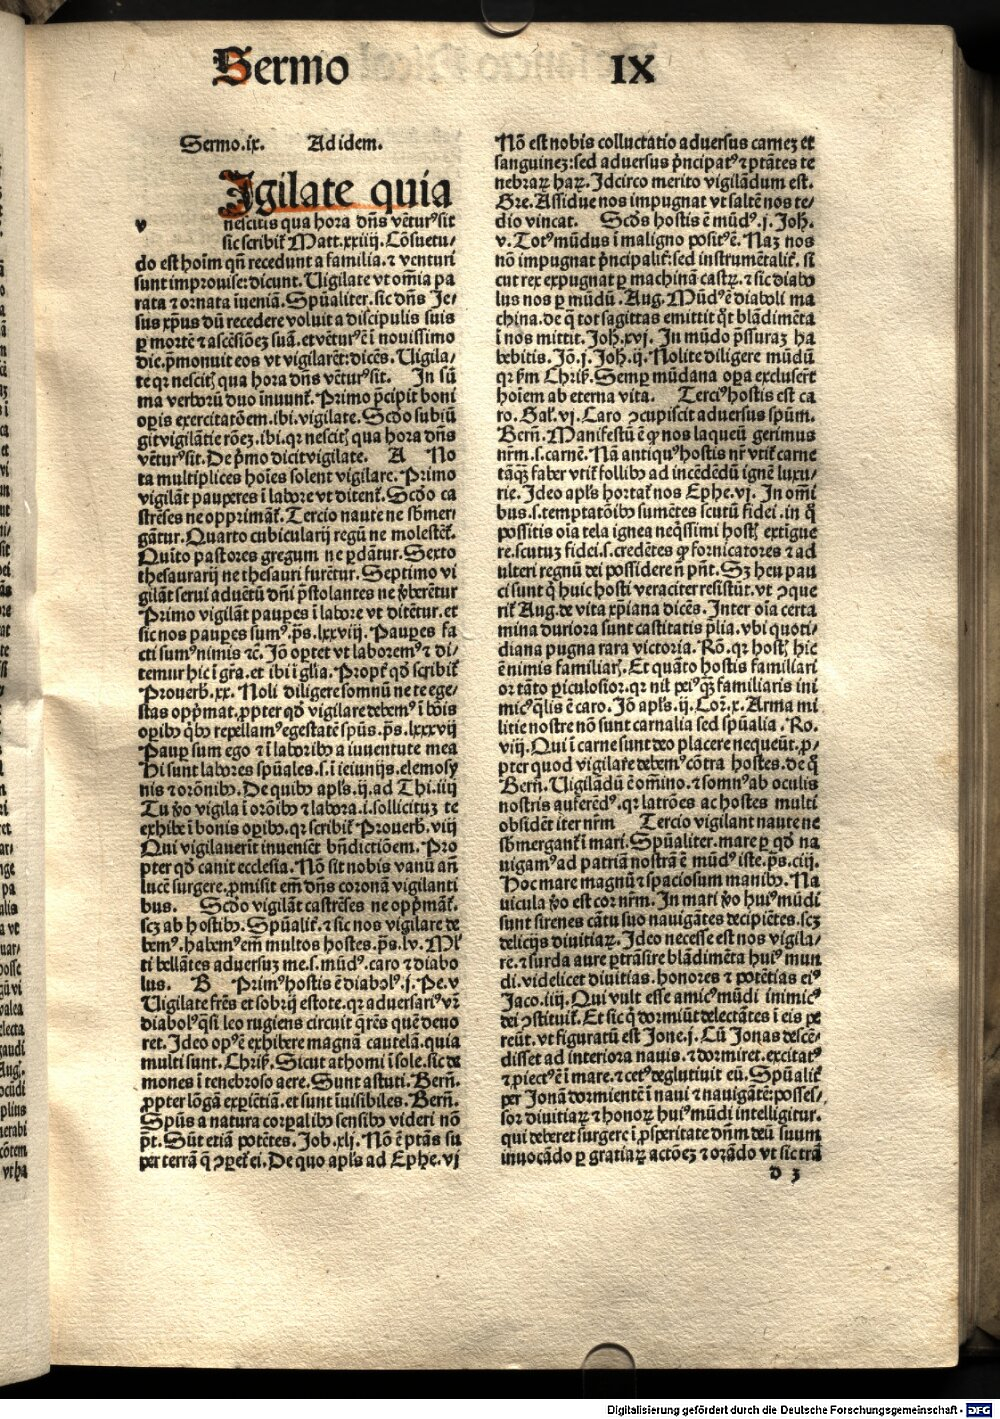 Sermo IX
Sermo.ix. Ad idem.
Igilate quia
v nescitis qua hora dñs vẽturꝰsit
sic scribit̃ Matt.xxiiij. Cõsuetu/
do est hoĩm qñ recedunt a familia. ⁊ venturi
sunt improuise: dicunt. Uigilate vt om̃ia pa
rata ⁊ ornata ĩueniã. Spũaliter. sic dñs Je/
sus xp̃us dũ recedere voluit a discipulis suis
ꝑ mortẽ ⁊ ascẽsiõeȝ suã. et vẽturꝰ ẽ ĩ nouissimo
die. p̃monuit eos vt vigilarẽt: dicẽs. Uigila/
te qr nescitꝭ qua hora dñs vẽturꝰsit. In sũ
ma verborũ duo ĩnuunt̃. Primo p̃cipit boni
oꝑis exercitatõem. ibi. vigilate. Scđo subiũ
git vigilãtie rõeȝ. ibi. qr nescitꝭ qua hora dñs
vẽturꝰsit. De p̃mo dicit vigilate. A No
ta multiplices hoĩes solent vigilare. Primo
vigilãt pauperes ĩ labore vt ditent̃. Scđo ca
strẽses ne opprimãt̃. Tercio naute ne sb̃mer/
gãtur. Quarto cubicularij regũ ne molestẽt̃.
Quĩto pastores gregum ne ꝑdãtur. Sexto
thesaurarij ne thesauri furẽtur. Septimo vi
gilãt serui aduẽtũ dñi p̃stolantes ne ꝟberẽtur
Primo vigilãt pauꝑes ĩ labore vt ditẽtur. et
sic nos pauꝑes sumꝰ. p̃s. lxxviij. Pauꝑes fa
cti sumꝰ nimis ⁊c̃. Jõ optet vt laboremꝰ ⁊ di/
temur hic ĩ gr̃a. et ibi ĩ glĩa. Propt̃ qđ scribit̃
Prouerb̃.xx. Noli diligere somnũ ne te ege/
stas opp̃mat. ꝓpter qđ vigilare debemꝰ ĩ bõis
oꝑibꝰ q̃bꝰ repellamꝰ egestatẽ spũs. p̃s. lxxxvij
Pauꝑ sum ego ⁊ ĩ laboribꝰ a iuuentute mea
Hi sunt labores spũales. s. ĩ ieiunijs. elemosy
nis ⁊ orõnibꝰ. De quibꝰ apl̃s. ij. ad Thi. iiij
Tu ꝟo vigila ĩ orõibꝰ ⁊ labora. i. sollicituȝ te
exhibe ĩ bonis oꝑibꝰ. qr scribit̃ Prouerb̃. viij
Qui vigilauerĩt inueniẽt bñdictiõem. Pro
pter qđ canit ecclesia. Nõ sit nobis vanũ añ
lucẽ surgere. ꝓmisit em̃ dñs coronã vigilanti
bus. Scđo vigilãt castrẽses ne opp̃mãt̃.
scȝ ab hostibꝰ. Spũalit̃. ⁊ sic nos vigilare de
bemꝰ. habemꝰ em̃ multos hostes. p̃s. lv. Ml̃
ti bellãtes aduersuȝ me. s. mũdꝰ. caro ⁊ diabo
lus. B Primꝰ hostis ẽ diabolꝰ. j. Pe. v
Uigilate fr̃es et sobrij estote. qr aduersariꝰ vr̃
diabolꝰ q̃si leo rugiens circuit q̃rẽs quẽ deuo
ret. Ideo opꝰ ẽ exhibere magnã cautelã. quia
multi sunt. Chriß. Sicut athomi ĩ sole. sic de
mones ĩ tenebroso aere. Sunt astuti. Berñ.
ꝓpter lõgã exꝑiẽtiã. et sunt ĩuisibiles. Berñ.
Spũs a natura corꝑalibꝰ sensibꝰ videri nõ
pñt. Sũt etiã potẽtes. Job. xlj. Nõ ẽ ptãs su
per terrã q̃ ↄꝑet̃ ei. De quo apl̃s ad Ephe. vj
Nõ est nobis colluctatio aduersus carneȝ et
sanguineȝ: sed aduersus p̃ncipatꝰ ⁊ ptãtes te
nebraꝝ haꝝ. Idcirco merito vigilãdum est.
Gre. Assidue nos impugnat vt saltẽ nos te/
dio vincat. Scđs hostis ẽ mũdꝰ. j. Joh.
v. Totꝰ mũdus ĩ maligno positꝰ ẽ. Naȝ nos
nõ impugnat p̃ncipalit̃: sed instrumẽtalit̃. si
cut rex expugnat ꝑ machinã castꝝ. ⁊ sic diabo
lus nos ꝑ mũdũ. Aug. Mũdꝰ ẽ diaboli ma
china. de q̃ tot sagittas emittit q̃t blãdimẽta
ĩ nos mittit. Joh. xvj. In mũdo p̃ssuraȝ ha
bebitis. Jõ. j. Joh. ij. Nolite diligere mũdũ
qr ẜm Chriß. Semꝑ mũdana oꝑa excluserũt
hoĩem ab eterna vita. Terciꝰ hostis est ca
ro. Gal̃. vj. Caro ↄcupiscit aduersus spũm.
Berñ. Manifestũ ẽ ꝙ nos laqueũ gerimus
nr̃m. s. carnẽ. Nã antiquꝰ hostis nr̃ vtit̃ carne
tãqȝ faber vtit̃ follibꝰ ad incẽdẽdũ ignẽ luxu/
rie. Ideo apl̃s hortat̃ nos Ephe. vj. In om̃i
bus. s. temptatõibꝰ sumẽtes scutũ fidei. in q̃
possitis oĩa tela ignea neq̃ssimi hostꝭ extĩgue
re. scutuȝ fidei. s. credẽtes ꝙ fornicatores ⁊ ad
ulteri regnũ dei possidere ñ pñt. Sȝ heu pau
ci sunt q̃ huic hosti veraciter resistũt. vt ↄque
rit̃ Aug. de vita xp̃iana dicẽs. Inter oĩa certa
mina duriora sunt castitatis p̃lia. vbi quoti/
diana pugna rara victoria. Rõ. qr hostꝭ hic
ẽ nimis familiarꝭ. Et quãto hostis familiari
or tãto ꝑiculosior. qr nil peiꝰ qȝ familiaris ini
micꝰ q̃lis ẽ caro. Jõ apl̃s. ij. Cor. x. Arma mi
litie nostre nõ sunt carnalia sed spũalia. Ro.
viij. Qui ĩ carne sunt deo placere nequeũt. ꝓ/
pter quod vigilare debemꝰ cõtra hostes. de q̃
Berñ. Uigilãdũ ẽ om̃ino. ⁊ somnꝰ ab oculis
nostris auferẽdꝰ. qr latrões ac hostes multi
obsidẽt iter nr̃m Tercio vigilant naute ne
sb̃mergant̃ ĩ mari. Spũaliter. mare ꝑ qđ na
uigamꝰ ad patriã nostrã ẽ mũdꝰ iste. p̃s. ciij.
Hoc mare magnũ ⁊ spaciosum manibꝰ. Na
uicula ꝟo est cor nr̃m. In mari ꝟo huiꝰ mũdi
sunt sirenes cãtu suo nauigãtes decipiẽtes. scȝ
delicijs diuitiaꝝ. Ideo necesse est nos vigila/
re. ⁊ surda aure ꝑtrãsire blãdimẽta huiꝰ mun
di. videlicet diuitias. honores ⁊ potẽtias eiꝰ
Jaco. iiij. Qui vult esse amicꝰ mũdi inimicꝰ
dei ↄstituit̃. Et sic q̃ dormiũt delectãtes ĩ eis pe
reũt. vt figuratũ est Jone. j. Cũ Jonas descẽ/
disset ad interiora nauis. ⁊ dormiret. excitatꝰ
⁊ ꝓiectꝰ ẽ ĩ mare. ⁊ cetꝰ deglutiuit eũ. Spũalit̃
per Jonã dormientẽ ĩ naui ⁊ nauigãtẽ: posses/
sor diuitiaꝝ ⁊ honoꝝ huiꝰ mũdi intelligitur.
qui deberet surgere ĩ ꝓsperitate dñm deũ suum
inuocãdo ꝑ gratiaꝝ actõeȝ ⁊ orãdo vt sic trã
d 3
Digitalisierung gefördert durch die Deutsche Forschungsgemeinschaft - DFG